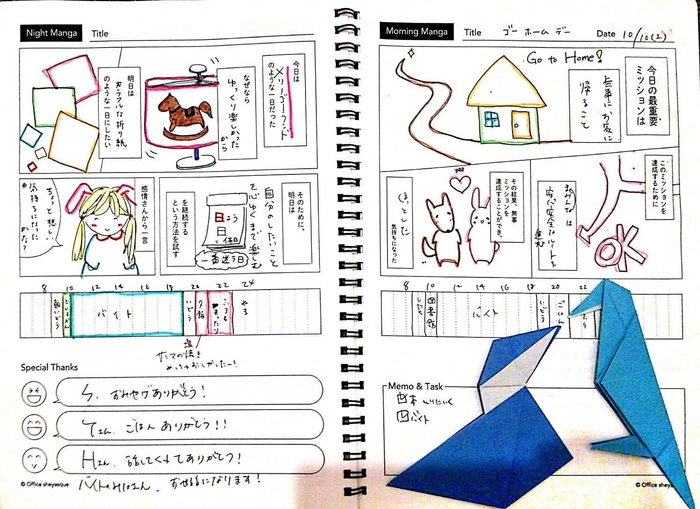 Night Manga
Title
今日は
メリーゴーランド
のような一日だった
なぜなら
ゆっくり楽しかった
から
明日は
カラフルな折り紙
のような一日にしたい
そのために、
明日は
自分のしたいこと
を心ゆくまで楽しむ
を継続する
という方法を試す
感情さんから一言
ちょっと悲しい
気持ちになった
かな?
8 10 12 14 16 18 20 22 24
バイト
いどう
夕飯
ねる
Special Thanks
S. おみやげありがとう!
Yさん、ごはんありがとう!!
Hさん、話してくれてありがとう!
お世話になります!
© Office
Morning Manga
Title ゴー ホーム デー
Date 10/10(土)
Go to Home!
今日の最重要
ミッションは
無事にお家に
帰ること
このミッションを
達成するために
安心安全なルートを
進む
OK
その結果、無事
ミッションを
達成することができ、
ほっとした
気持ちになった
8 10 12 14 16 18 20
したく
図書館
バイト
いどう
ごはん
Memo & Task
バイト
© Office